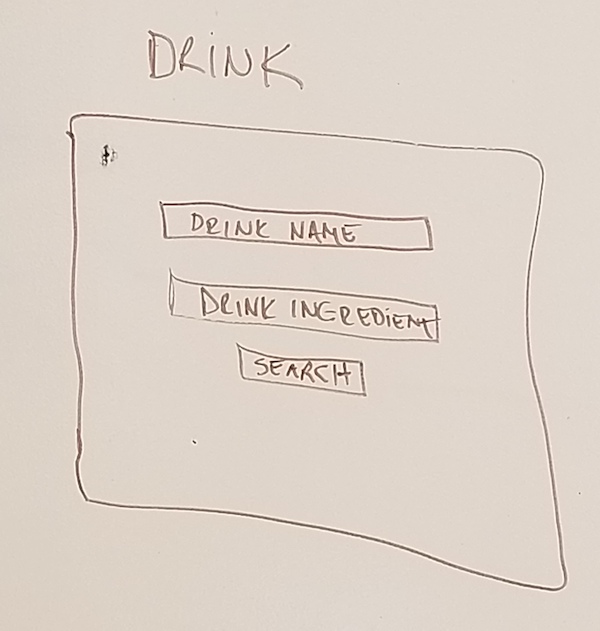 DRINK
DRINK NAME
DRINK INGREDIENT
SEARCH